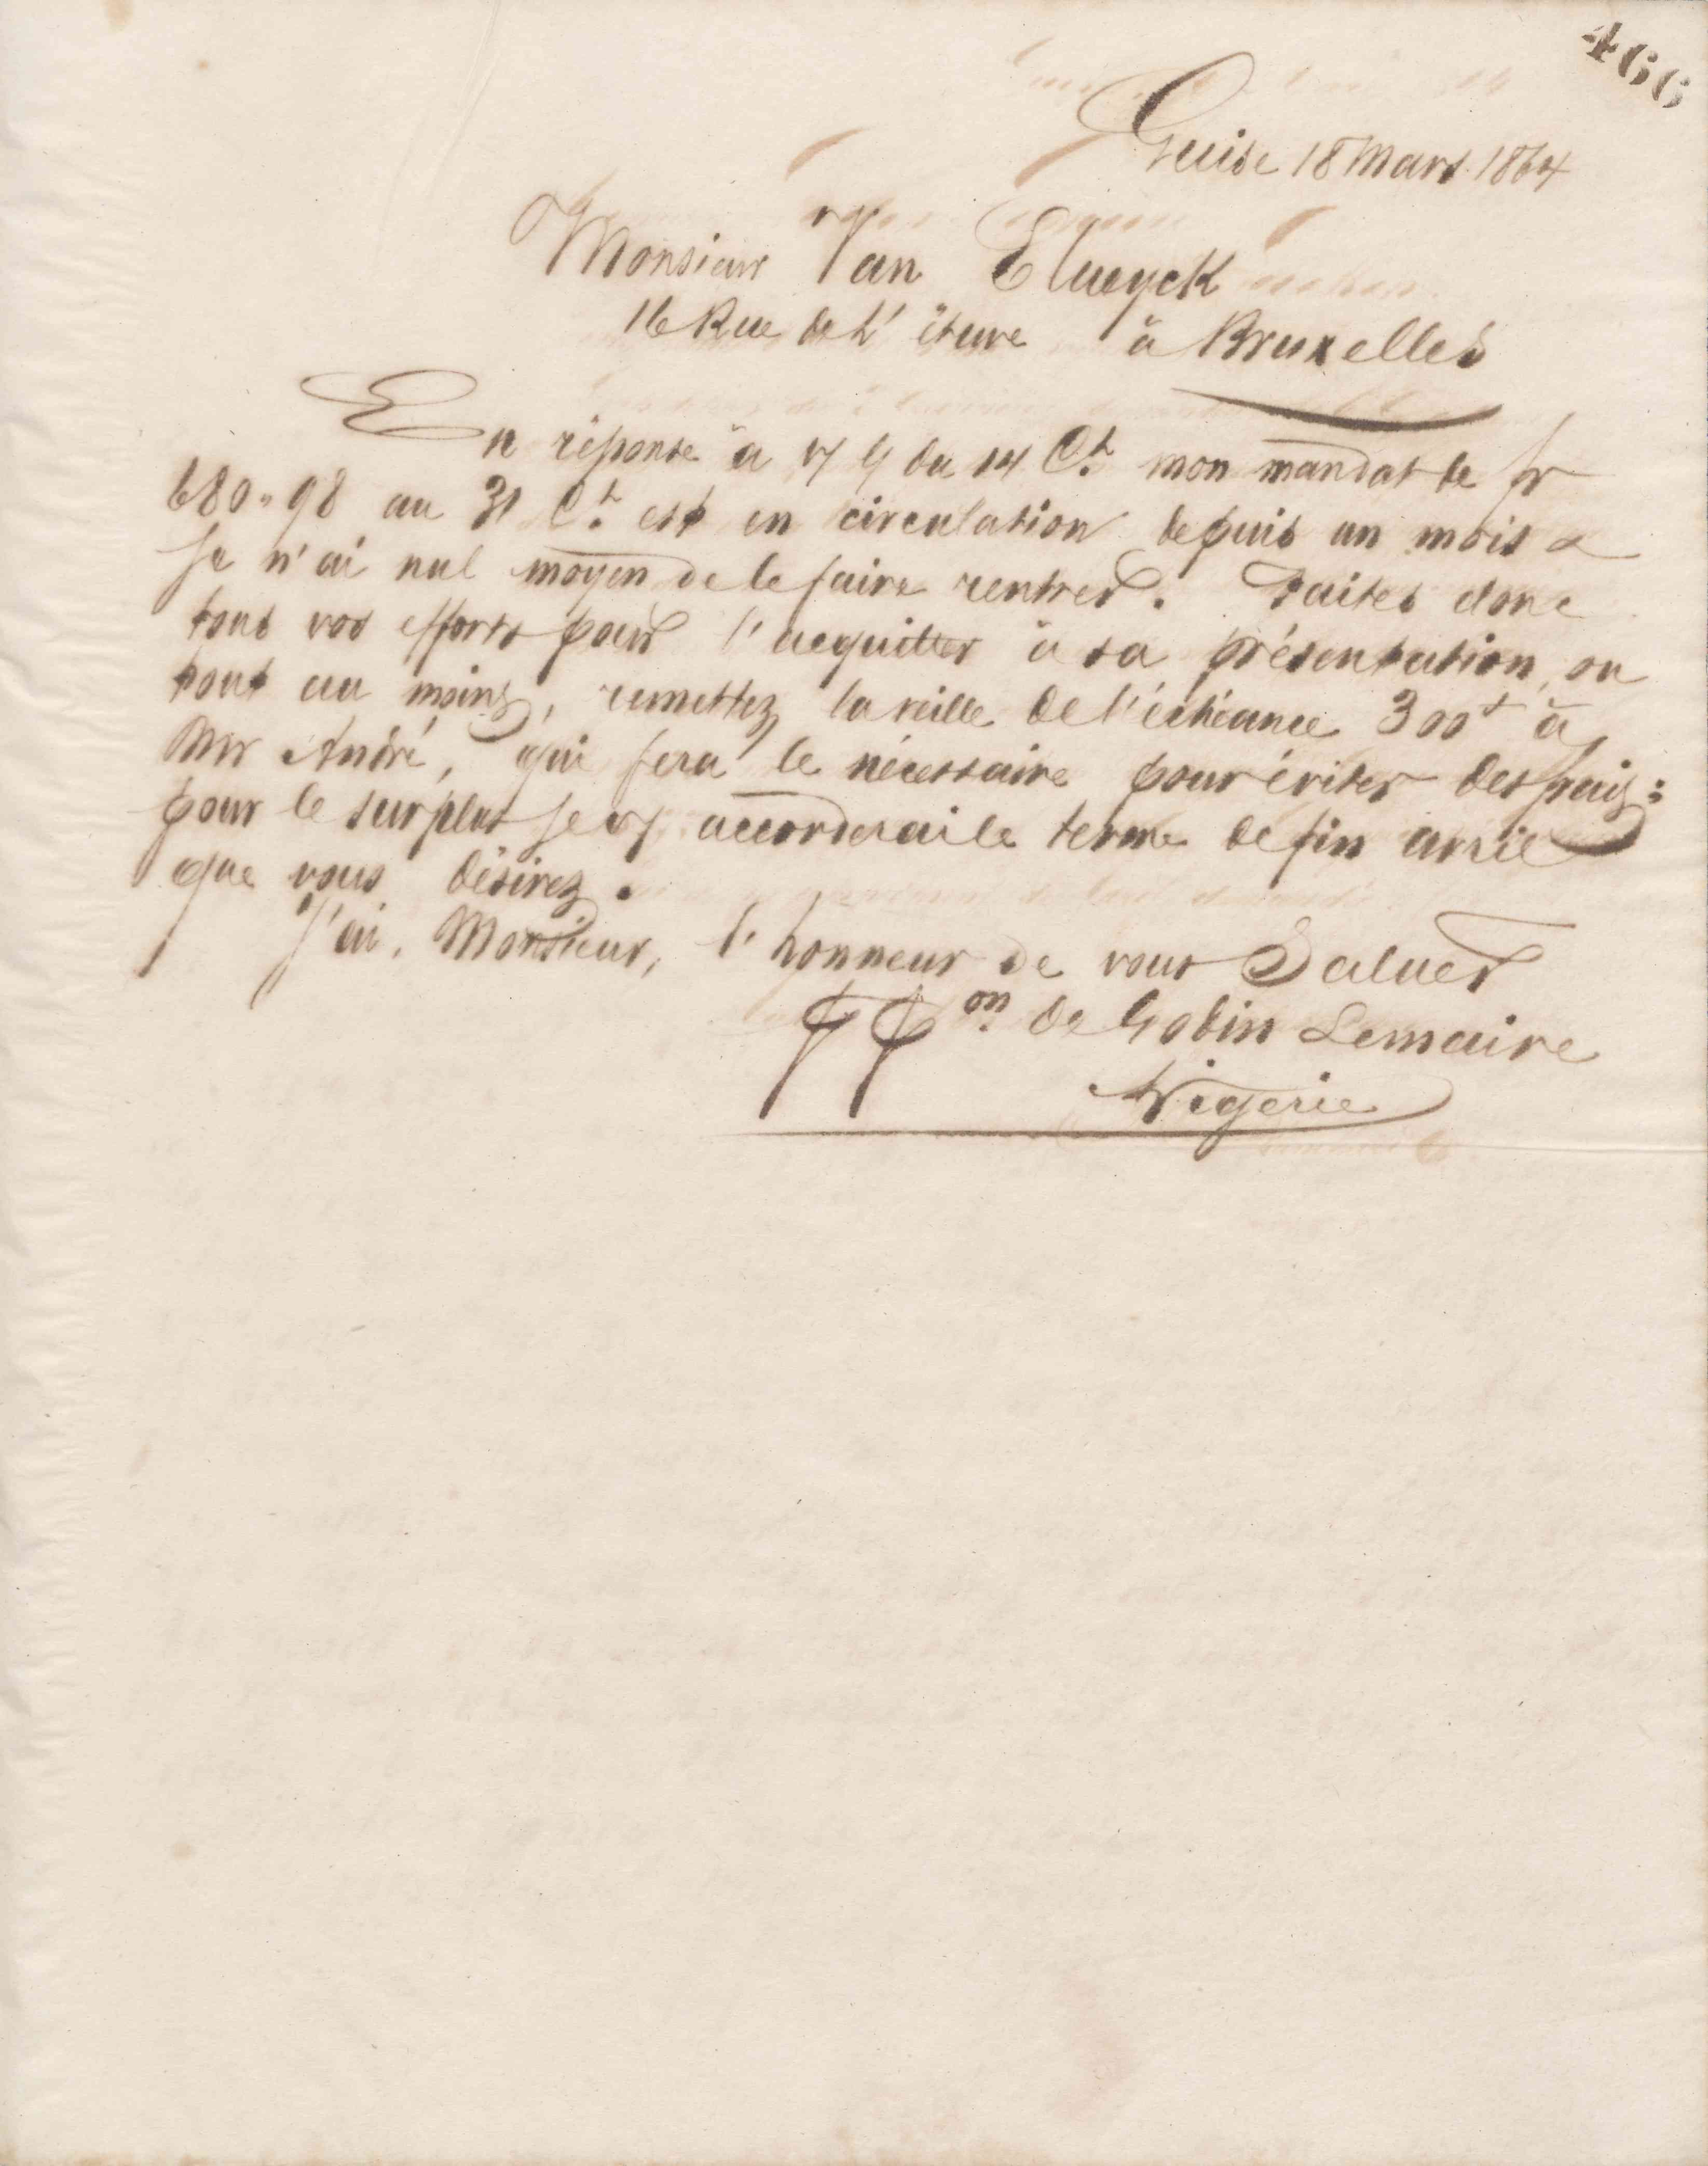 466
Guise 18 Mars 1864
Monsieur Van Elueyck
16 Rue de l'étuve à Bruxelles
En réponse à v/ du 14 Ct mon mandat de fr
680"98 au 31 Ct est en circulation depuis un mois &
je n'ai nul moyen de le faire rentrer. Faites donc
tous vos efforts pour l'acquitter à sa présentation, ou
tout au moins, remettez la veille de l'échéance 300f à
Mr André, qui fera le nécessaire pour éviter des frais :
pour le surplus je v/ accorderai le terme de fin avril
que vous désirez.
J'ai, Monsieur, l'honneur de vous Saluer
on. de Godin Lemaire